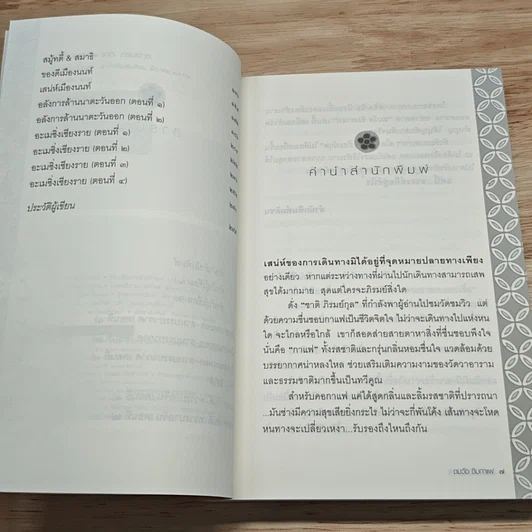 สมุ้ทตี้ & สมาธิ
ของดีเมืองนนท์
เสน่ห์เมืองนนท์
อลังการล้านนาตะวันออก (ตอนที่ ๑)
อลังการล้านนาตะวันออก (ตอนที่ ๒)
อะเมซิ่งเชียงราย (ตอนที่ ๑)
อะเมซิ่งเชียงราย (ตอนที่ ๒)
อะเมซิ่งเชียงราย (ตอนที่ ๓)
อะเมซิ่งเชียงราย (ตอนที่ ๔)
ประวัติผู้เขียน
คำนำสำนักพิมพ์
เสน่ห์ของการเดินทางมิได้อยู่ที่จุดหมายปลายทางเพียง
อย่างเดียว หากแต่ระหว่างทางที่ผ่านไปนักเดินทางสามารถเสพ
สุขได้มากมาย สุดแต่ใครจะภิรมย์สิ่งใด
ดั่ง “ชาติ ภิรมย์กุล” ที่กำลังพาผู้อ่านไปชมวัดชมวิว แต่
ด้วยความชื่นชอบกาแฟเป็นชีวิตจิตใจ ไม่ว่าจะเดินทางไปแห่งหน
ใด จะไกลหรือใกล้ เขาก็สอดส่ายสายตาหาสิ่งที่ชื่นชอบพึงใจ
นั่นคือ “กาแฟ” ทั้งรสชาติและกรุ่นกลิ่นหอมชื่นใจ แวดล้อมด้วย
บรรยากาศน่าหลงใหล ช่วยเสริมเติมความงามของวัดวาอาราม
และธรรมชาติมากขึ้นเป็นทวีคูณ
สำหรับคอกาแฟ แค่ได้สูดกลิ่นและลิ้มรสชาติที่ปรารถนา
...มันช่างมีความสุขเสียยิ่งกระไร ไม่ว่าจะกี่พันโค้ง เส้นทางจะโหด
หนทางจะเปลี่ยวเหงา...รับรองถึงไหนถึงกัน
ชมวัด ชิมกาแฟ ๗